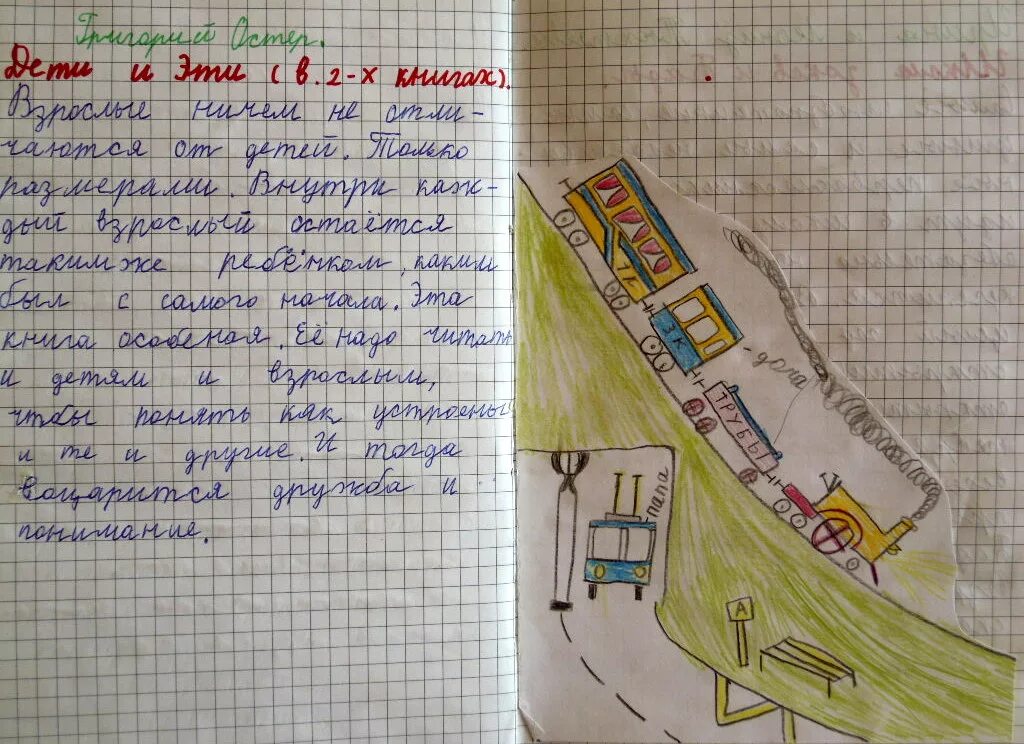 Григорий Остер.
Дети и Эти (в. 2-х книгах).
Взрослые ничем не отли-
чаются от детей. Только
размерами. Внутри каж-
дый взрослый остаётся
таким же ребёнком, каким
был с самого начала. Эта
книга особеная. Её надо читать
и детям и взрослым,
чтобы понять как устроены
и те и другие. И тогда
воцарится дружба и
понимание.
ЗК
- дома
ТРУБЫ
папа
А